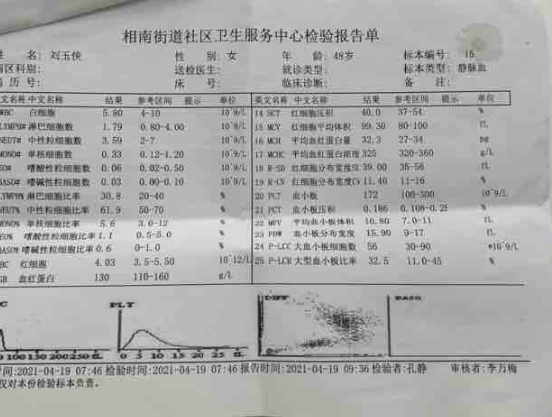 相南街道社区卫生服务中心检验报告单
名: 刘玉侠 性 别: 女 年 龄: 48岁 标本编号: 15
病区科别: 送检医生: 就诊类型: 标本类型: 静脉血
病 历 号: 床 号: 临床诊断: 备 注:
英文名称 中文名称 结果 参考区间 提示 单位 英文名称 中文名称 结果 参考区间 提示 单位
WBC 白细胞 5.80 4-10 10^9/L 14 HCT 红细胞压积 40.0 37-54 %
LYMPH# 淋巴细胞数 1.79 0.80-4.00 10^9/L 15 MCV 红细胞平均体积 99.30 80-100 fL
NEUT# 中性粒细胞数 3.59 2-7 10^9/L 16 MCH 平均血红蛋白量 32.3 27-34
MONO# 单核细胞数 0.33 0.12-1.20 10^9/L 17 MCHC 平均血红蛋白浓度 325 320-360 g/L
EO# 嗜酸性粒细胞数 0.06 0.02-0.50 10^9/L 18 R-SD 红细胞分布宽度 39.00 35-56 fL
BASO# 嗜碱性粒细胞数 0.03 0.00-0.10 10^9/L 19 R-CV 红细胞分布宽度CV 11.40 11-16 %
LYMPH% 淋巴细胞比率 30.8 20-40 % 20 PLT 血小板 172 100-300 10^9/L
NEUT% 中性粒细胞比率 61.9 50-70 % 21 PCT 血小板压积 0.186 0.108-0.28 %
MONO% 单核细胞比率 5.6 3.0-12 % 22 MPV 平均血小板体积 10.80 7.0-11 fL
EO% 嗜酸性粒细胞比率 1.1 0.5-5.0 % 23 PDW 血小板分布宽度 15.90 9-17 fL
BASO% 嗜碱性粒细胞比率 0.6 0-1.0 % 24 P-LCC 大血小板细胞数 56 30-90 *10^9/L
RBC 红细胞 4.03 3.5-5.50 10^12/L 25 P-LCR 大型血小板比率 32.5 11.0-45 %
HGB 血红蛋白 130 110-160 g/L
PLT DIFF BASO
0 100 150 200 250 fL 0 5 10 15 20 25 fL
时间:2021-04-19 07:46 检验时间:2021-04-19 07:46 报告时间:2021-04-19 09:36 检验者:孔静 审核者:李万梅
仅对本份检验标本负责.